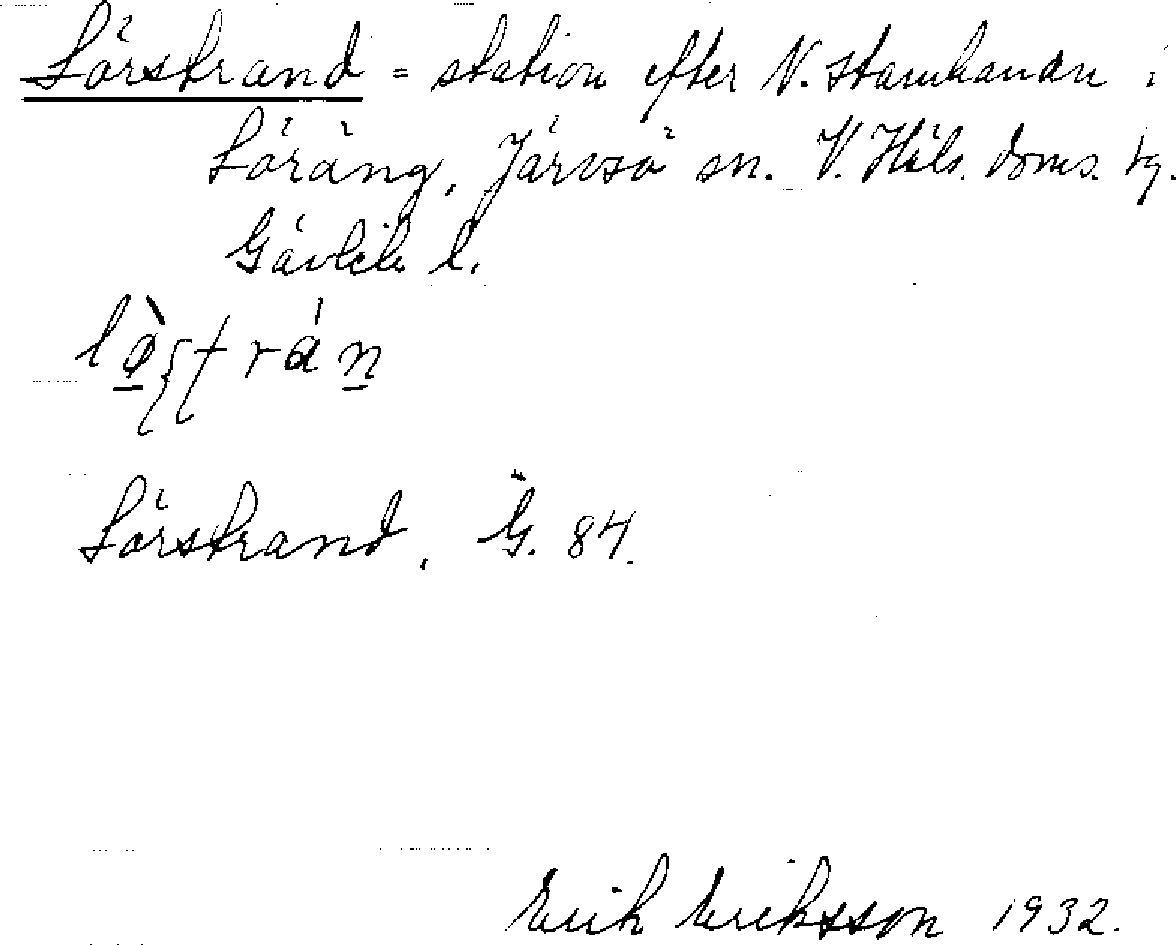 Lörstrand = station efter N. Stambanan i
Löräng, Järvsö sn. V. Häls. doms. tg.
Gävleb. l.
Lörstrand, G. 84.
Erik Eriksson 1932.